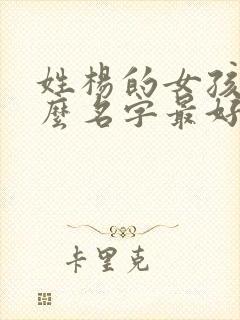 姓楊的女孩
麼名字最好
卡里克